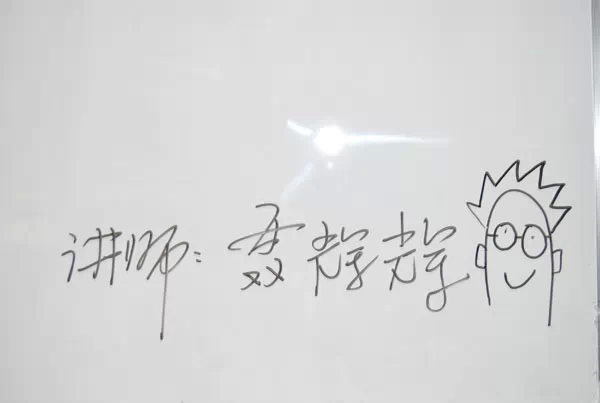 讲师：聂辉辉